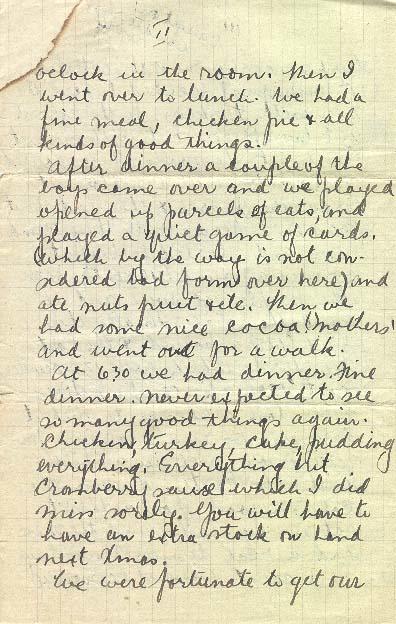 II
oclock in the room. Then I
went over to lunch. We had a
fine meal, chicken pie & all
kinds of good things.
After dinner a couple of the
boys came over and we played
opened up parcels of eats, and
played a quiet game of cards.
(which by the way is not con-
sidered bad form over here) and
ate nuts fruit & etc. Then we
had some nice cocoa (Mothers'
and went out for a walk.
At 630 we had dinner. Fine
dinner. never expected to see
so many good things again.
Chicken, turkey, cake, pudding
everything. Everything but
Cranberry sause which I did
miss sorely. You will have to
have an extra stock on hand
next Xmas.
We were fortunate to get our